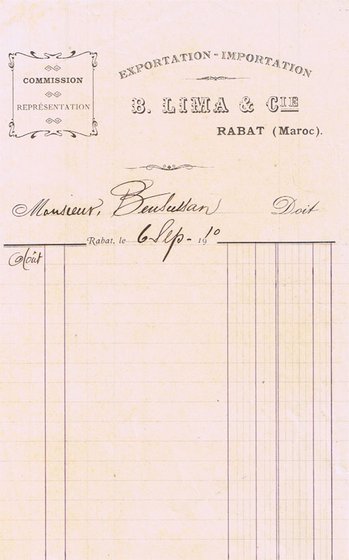 COMMISSION
REPRÉSENTATION
EXPORTATION-IMPORTATION
B. LIMA & CIE
RABAT (Maroc).
Monsieur, Bensussan Doit
Rabat, le 6 Sep. 1910
Août